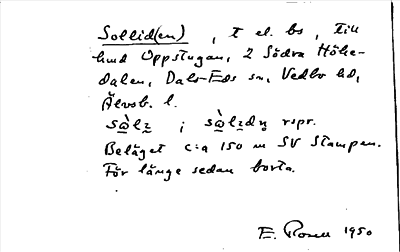 Sollid(en), t el. bs, till
hmd Uppstugan, 2 Södra Höke-
dalen, Dals-Eds sn, Vedbo hd,
Älvsb. l.
rspr.
Beläget c:a 150 m SV Stampen.
För länge sedan borta.
E. Rosell 1950